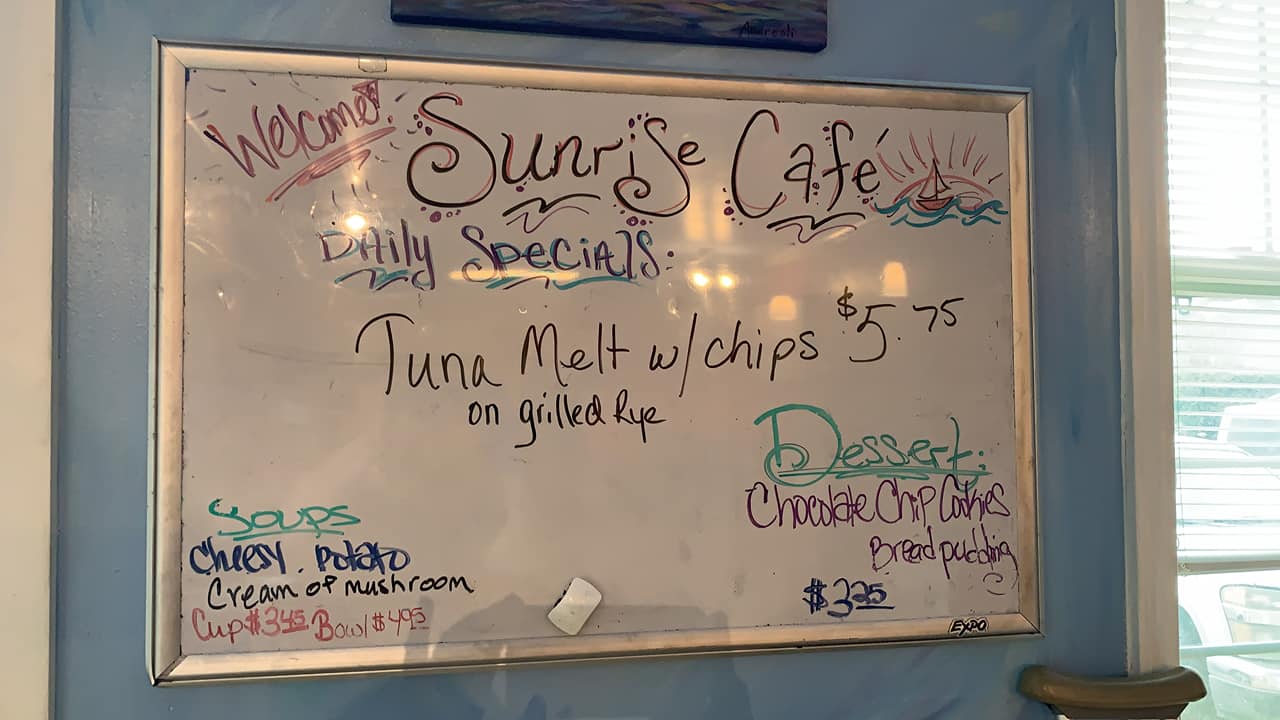 Andreoli
Welcome!
Sunrise Café
Daily Specials:
Tuna Melt w/chips $5.75
on grilled Rye
Dessert:
Chocolate Chip Cookies
Bread pudding
$3.25
Soups
Cheesy. Potato
Cream of mushroom
Cup $3.45 Bowl $4.95
EXPO